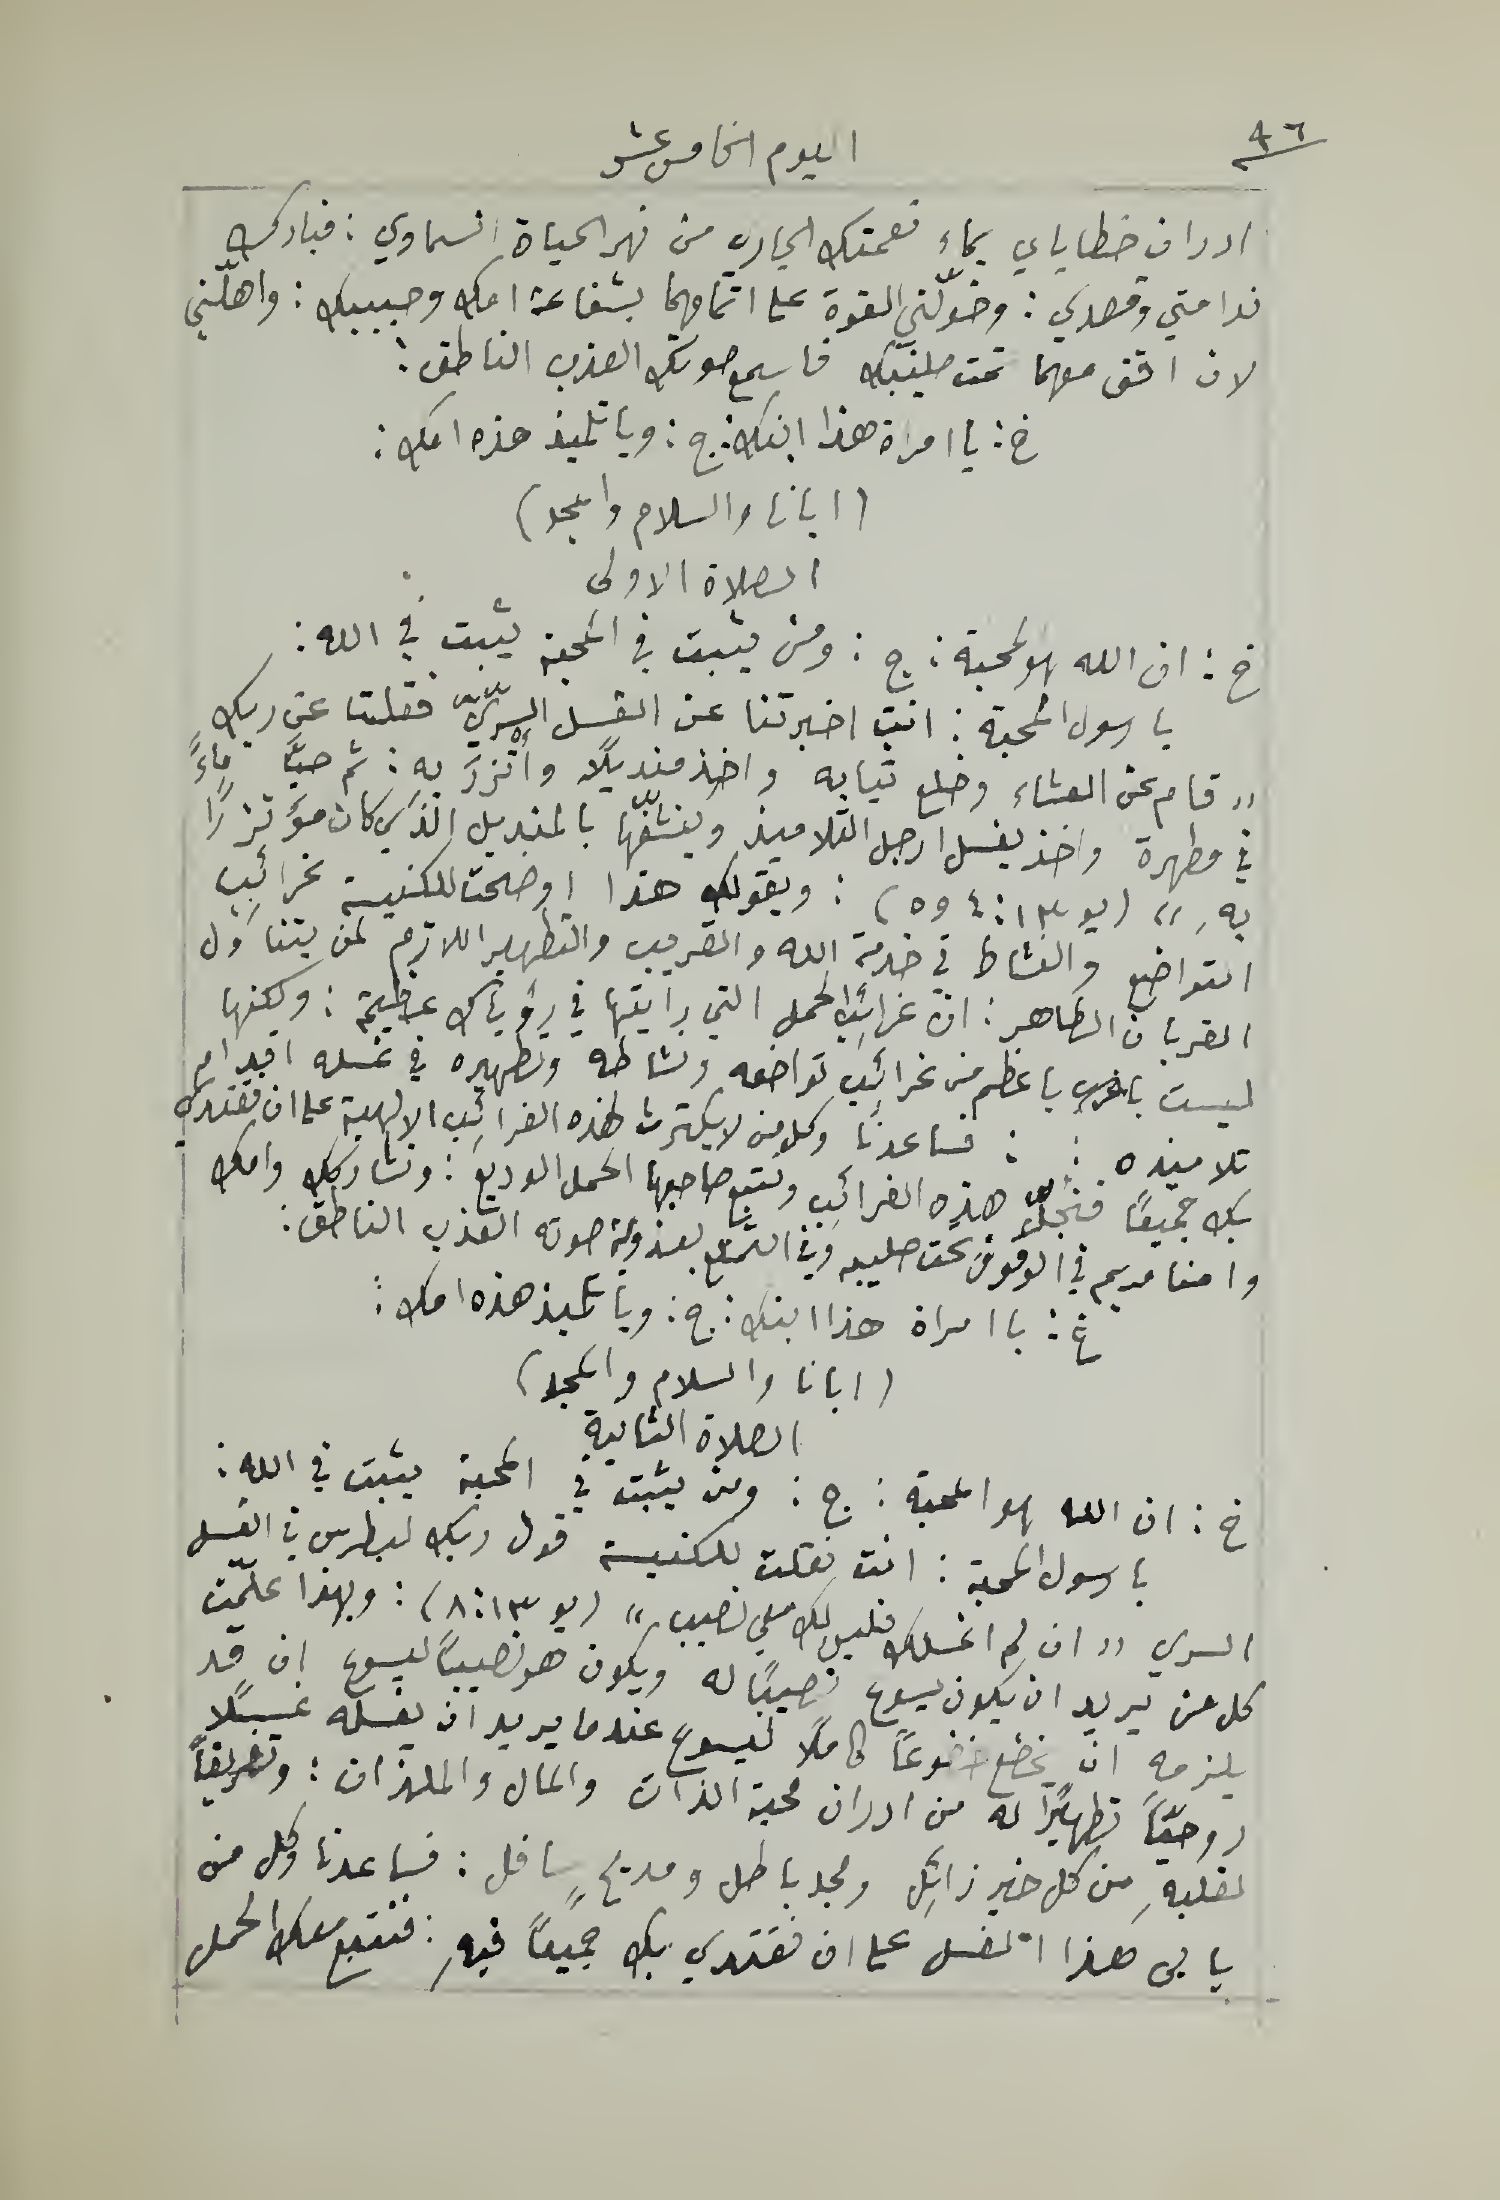 ٤٦
اليوم الخامس عشر
ادران خطاياي بماء نعمتك الجاري من نهر الحياة السماوي : فبارك
ندامتي وقصدي : وخوّلني القوة على اتمامهما بشفاعة امك وحبيبك : واهلّني
لان اقف معهما تحت صليبك فاسمع صوتك العذب الناطق :
خ : يا امراة هذا ابنك : ج : ويا تلميذ هذه امك :
( ابانا والسلام والمجد )
الصلاة الاولى
خ : ان الله هو المحبة : ج : ومن يثبت في المحبة يثبت في الله :
يا رسول المحبة : انت اخبرتنا عن الغسل السريّ فقلت عن ربك
" قام عن العشاء وخلع ثيابه واخذ منديلًا وأتزرَ بهِ : ثم صبَّ ماءً
في مطهرة واخذ يغسل ارجل التلاميذ وينشّفها بالمنديل الذي كان مؤتزرًا
بهِ " ( يو ١٣ : ٤ و٥ ) : وبقولك هذا اوضحت للكنيسة غرائب
التواضع والنشاط في خدمة الله والقريب والتطهير اللازم لمن يتناول
القربان الطاهر : ان غرائب الحمل التي رايتها في رؤياك عظيمة : ولكنها
ليست باعظم من غرائب تواضعه ونشاطه وتطهيره في غسله اقدام
تلاميذه : فساعدنا وكل من لا يكترث لهذه الغرائب الالهية على ان نقتدي
بك جميعًا فنجلّ هذه الغرائب ونتبع صاحبها الحمل الوديع : ونشاركك وامك
وامنا مريم في الوقوف تحت صليبه وفي التمتّع بعذوبة صوته العذب الناطق :
خ : يا امراة هذا ابنك : ج : ويا تلميذ هذه امك :
( ابانا والسلام والمجد )
الصلاة الثانية
خ : ان الله هو المحبة : ج : ومن يثبت في المحبة يثبت في الله :
يا رسول المحبة : انت نقلت للكنيسة قول ربك لبطرس في الغسل
السري " ان لم اغسلك فليس لك معي نصيب " ( يو ١٣ : ٨ ) : وبهذا علّمت
كل من يريد ان يكون يسوع نصيبًا له ويكون هو نصيبًا ليسوع ان قد
يلزمه ان يخضع خضوعًا كاملًا ليسوع عندما يريد ان يغسله غسلًا
روحيًّا تطهيرًا له من ادران محبة الذات والمال والملذات : وتفريغًا
لقلبهِ من كل خير زائل ومجد باطل ومديحٍ سافل : فساعدنا وكل من
يابى هذا الغسل على ان نقتدي بك جميعًا فيهِ : فنتبع معك الحمل